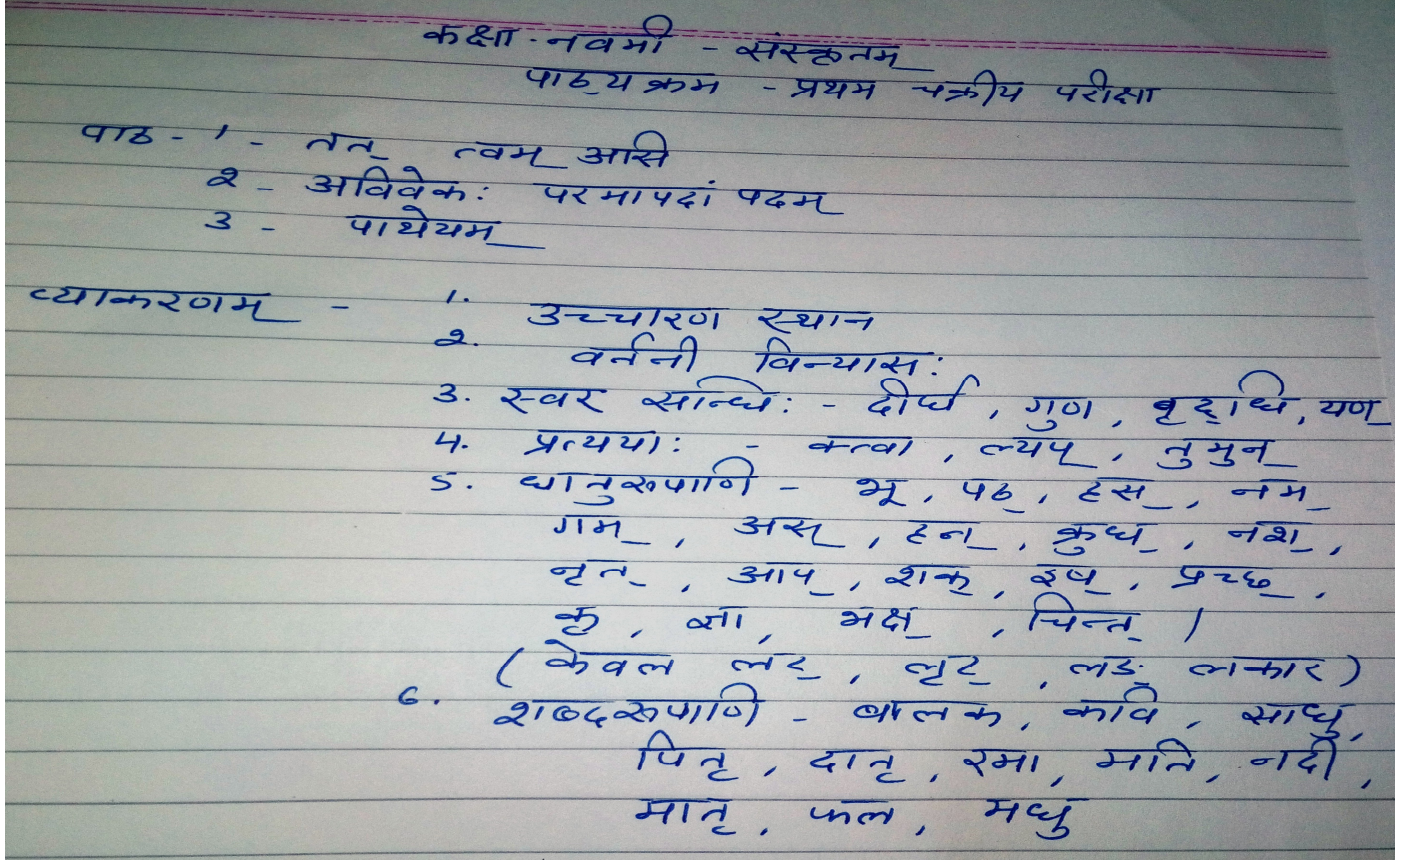 कक्षा - नवमी - संस्कृतम्
पाठ्यक्रम - प्रथम चक्रीय परीक्षा
पाठ - 1 - तत् त्वम् असि
2 - अविवेक: परमापदां पदम्
3 - पाथेयम्
व्याकरणम् - 1. उच्चारण स्थान
2. वर्तनी विन्यास:
3. स्वर सन्धि: - दीर्घ, गुण, वृद्धि, यण्
4. प्रत्यया: - क्त्वा, ल्यप्, तुमुन्
5. धातुरूपाणि - भू, पठ्, हस्, नम्
गम्, अस्, हन्, क्रुध्, नश्,
नृत्, आप्, शक्, इष्, प्रच्छ्,
कृ, ज्ञा, भक्ष्, चिन्त् /
(केवल लट्, लृट्, लङ् लकार)
6. शब्दरूपाणि - बालक, कवि, साधु,
पितृ, दातृ, रमा, मति, नदी,
मातृ, फल, मधु